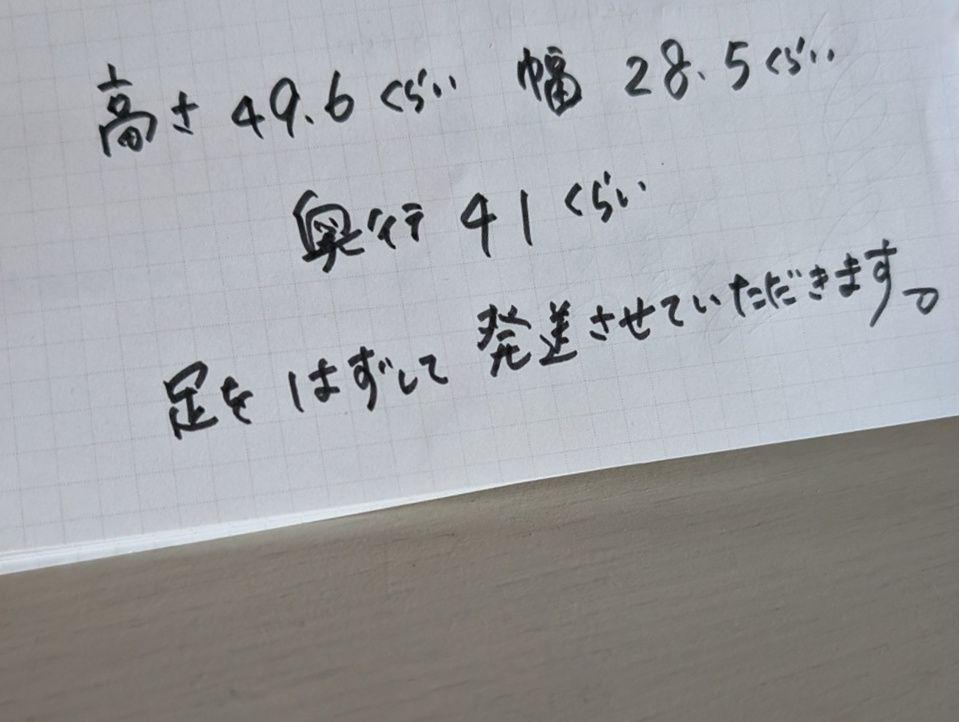 高さ 49.6 くらい 幅 28.5 くらい
奥行 41 くらい
足をはずして 発送させていただきます。